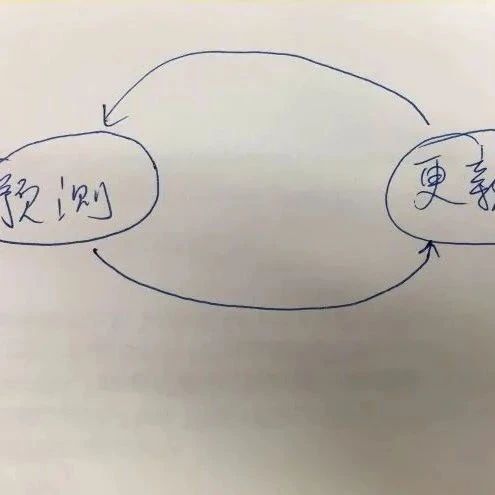 预测
更新